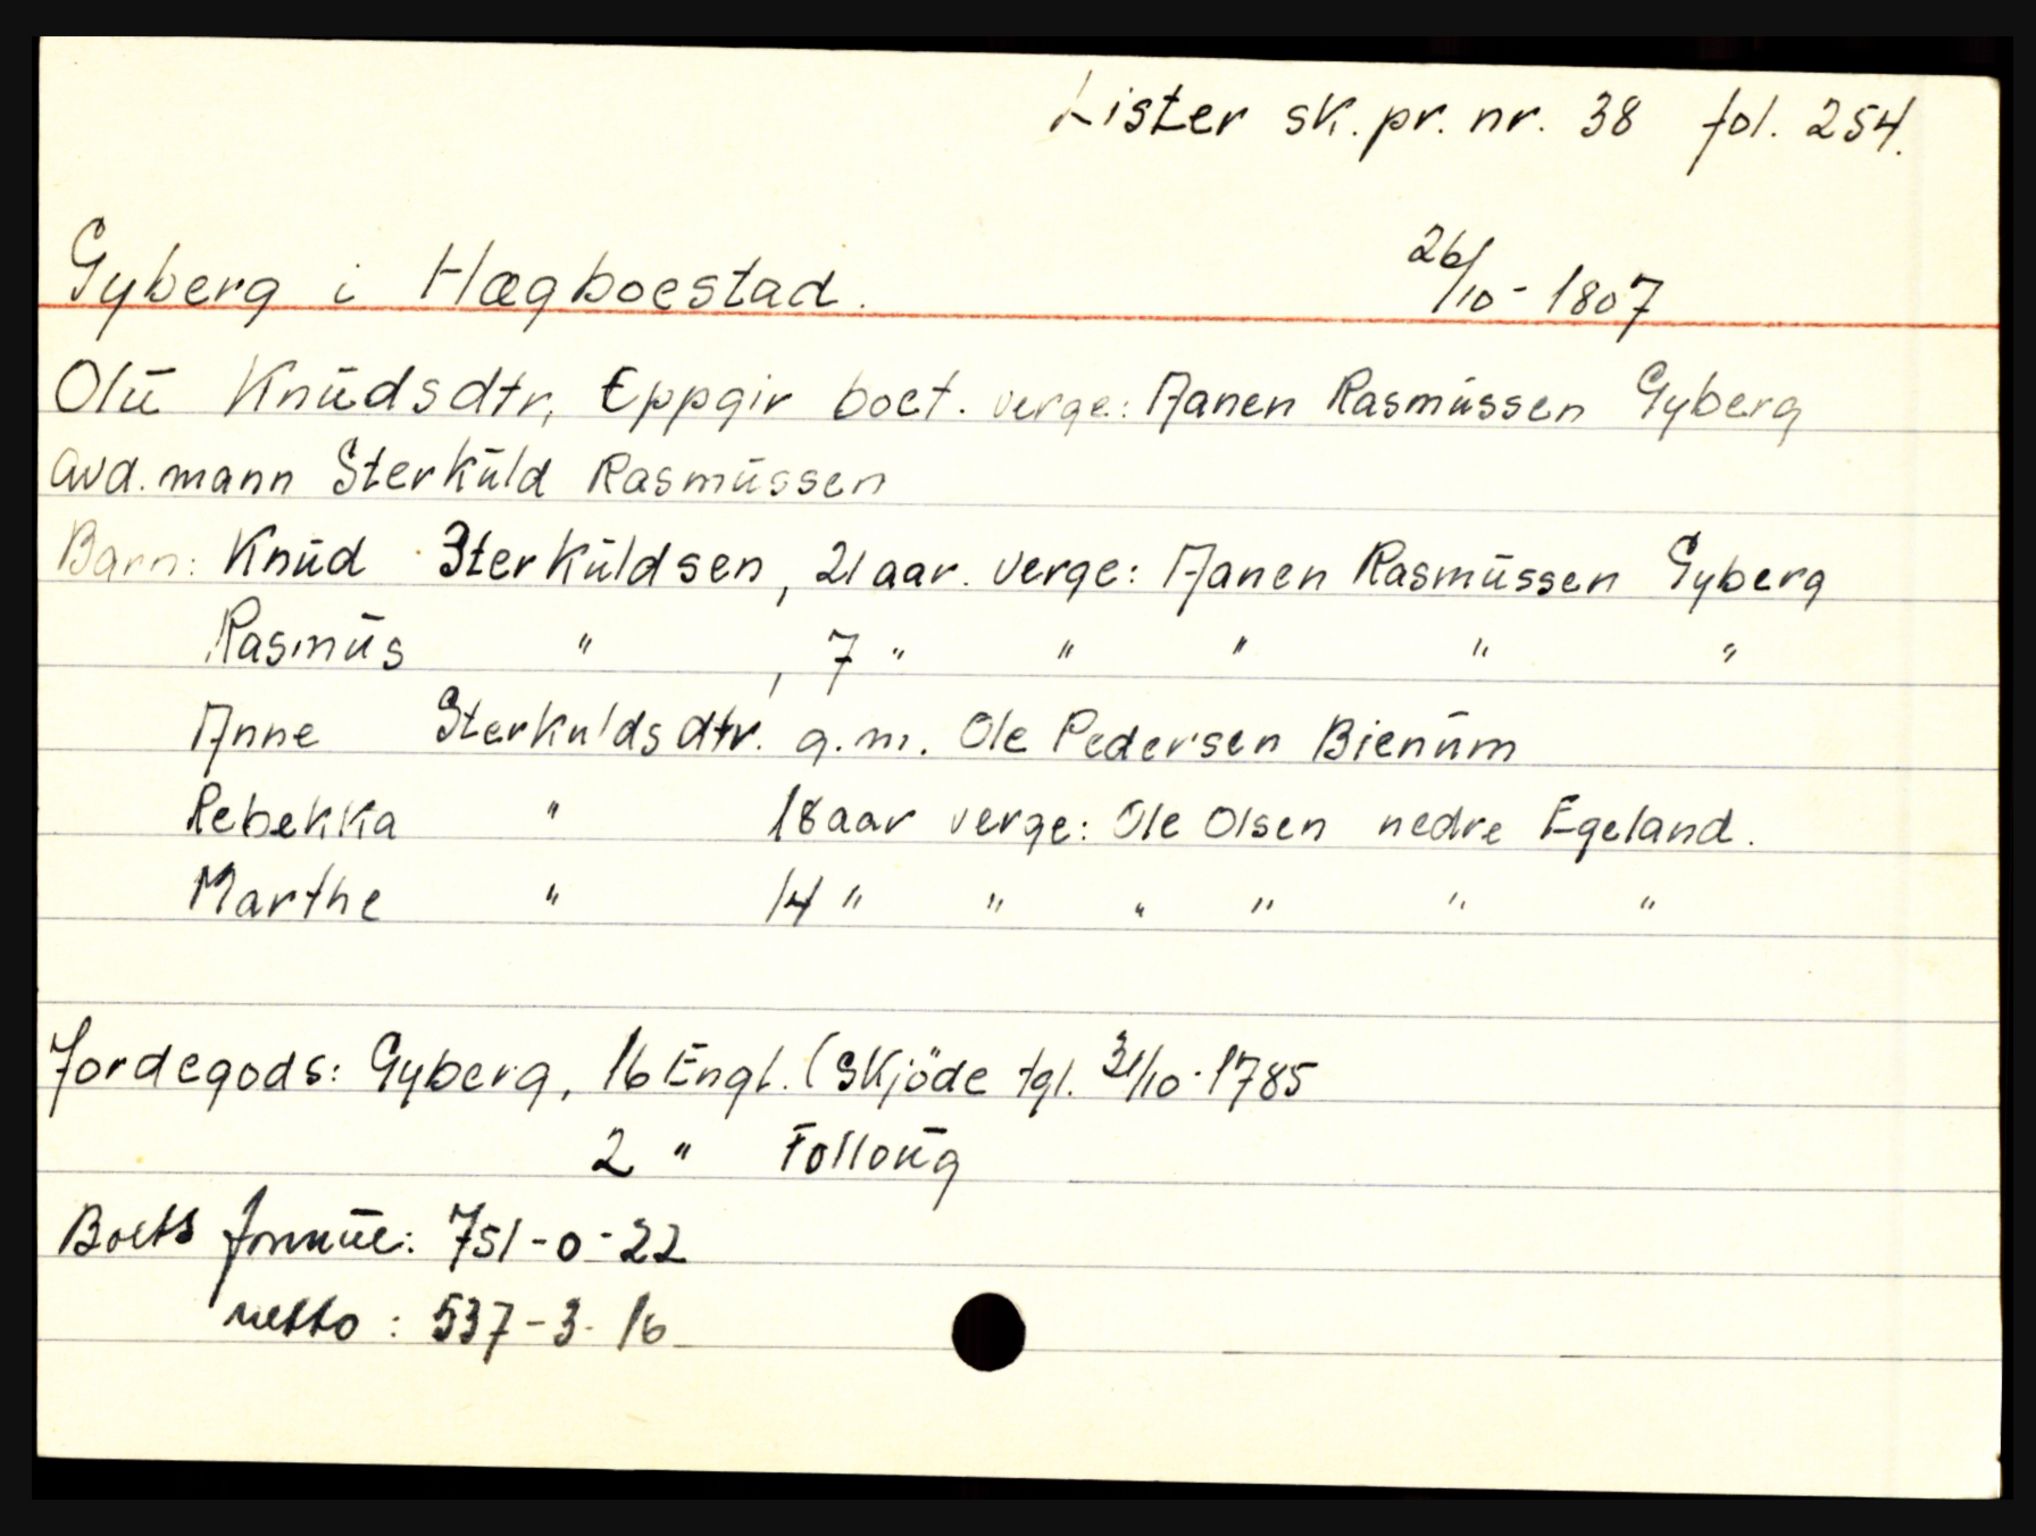 Lister sk.pr. nr. 38 fol. 254.
Gyberg i Hægboestad. 26/10 - 1807
Olü Knüdsdtr, Eppgir boet. verge: Aanen Rasmüssen Gyberg
avd. mann Sterküld Rasmüssen
Barn: Knüd Sterküldsen, 21 aar. verge: Aanen Rasmüssen Gyberg
Rasmüs " , 7 " " " " "
Anne Sterkuldsdtr. g.m. Ole Pedersen Bienüm
Rebekka " 18 aar verge: Ole Olsen nedre Egeland.
Marthe " 14 " " " " " "
Jordegods: Gyberg, 16 Engl. (Skjöde tgl. 31/10 - 1785
2 " Folloüg
Boets formüe: 751 - 0 - 22
netto : 537 - 3 - 16